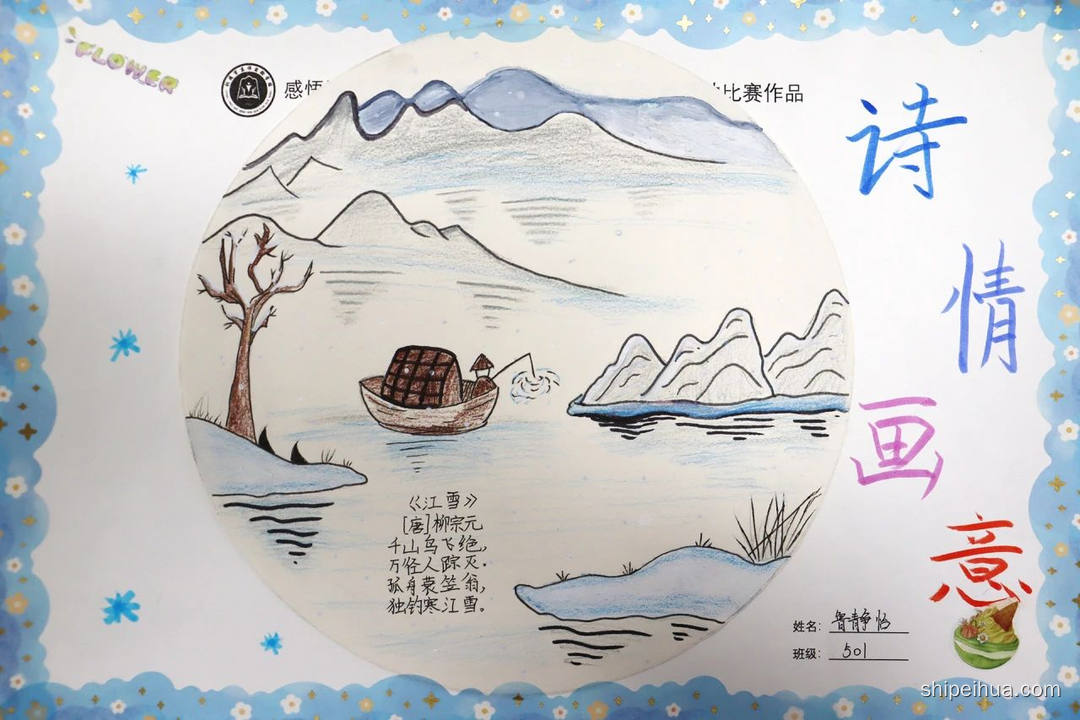 FLOWER
感悟
比赛作品
诗
情
画
意
《江雪》
[唐]柳宗元
千山鸟飞绝，
万径人踪灭.
孤舟蓑笠翁，
独钓寒江雪。
姓名： 静怡
班级： 501
shipeihua.com